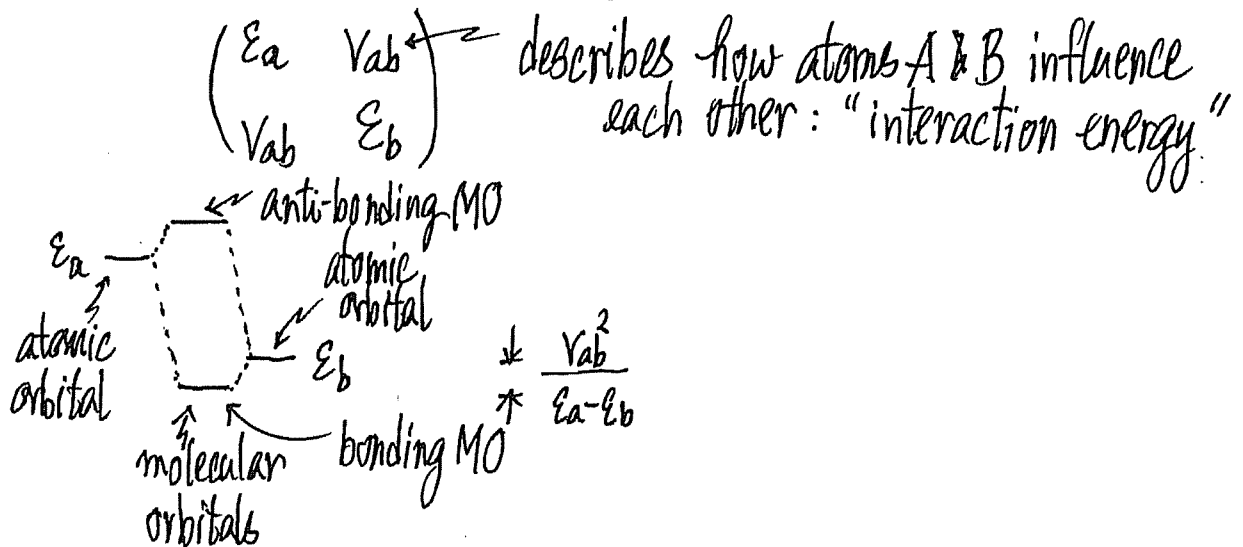 εa Vab
Vab εb
describes how atoms A & B influence
each other: "interaction energy."
anti-bonding MO
εa
atomic
orbital
atomic
orbital
εb
Vab²
εa-εb
bonding MO
molecular
orbitals